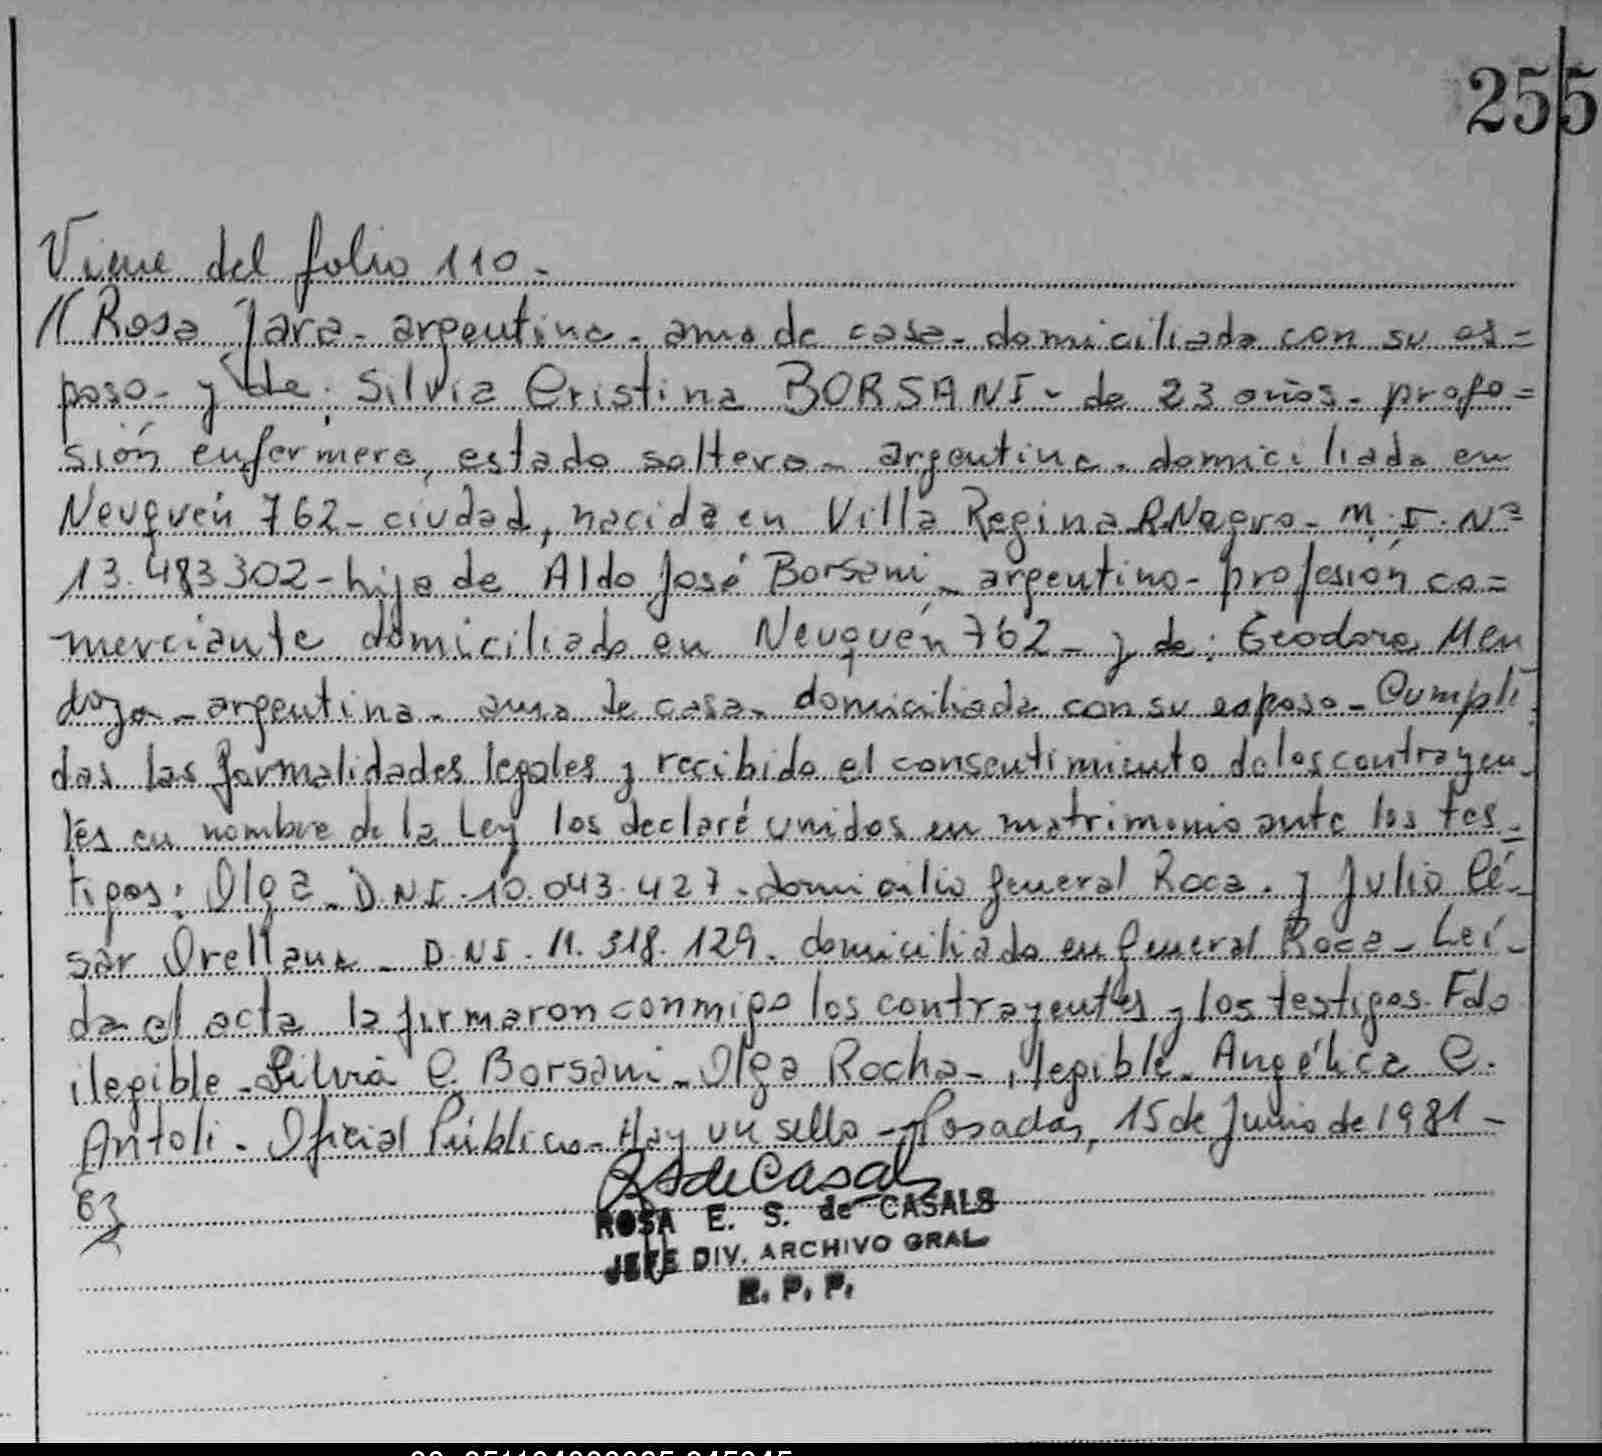 255
Viene del folio 110-
// Rosa Jara- argentina- ama de casa- domiciliada con su es=
poso- y de: Silvia Cristina BORSANI- de 23 años- profe=
sión enfermera, estado soltera- argentina- domiciliada en
Neuquén 762- ciudad, nacida en Villa Regina R.Negro- M.I. Nº
13.483302- hija de Aldo José Borsani- argentino- profesión co=
merciante domiciliado en Neuquén 762- y de: Men
doza- argentina- ama de casa- domiciliada con su esposo- Cumpli
das las formalidades legales y recibido el consentimiento de los contrayen-
tes en nombre de la Ley los declaré unidos en matrimonio ante los tes-
tigos: Olga- D.N.I.- 10.043.427- domicilio General Roca- y Julio Cé-
sar Orellana- D.N.I.- 11.318.129- domiciliado en General Roca- Leí-
da el acta la firmaron conmigo los contrayentes y los testigos. Fdo
ilegible- Silvia C. Borsani- Olga Rocha- ilegible- Angélica C.
Antoli- Oficial Público- Hay un sello- Posadas, 15 de Junio de 1981-
RSdeCasals
ROSA E. S. de CASALS
JEFE DIV. ARCHIVO GRAL
R. P. P.